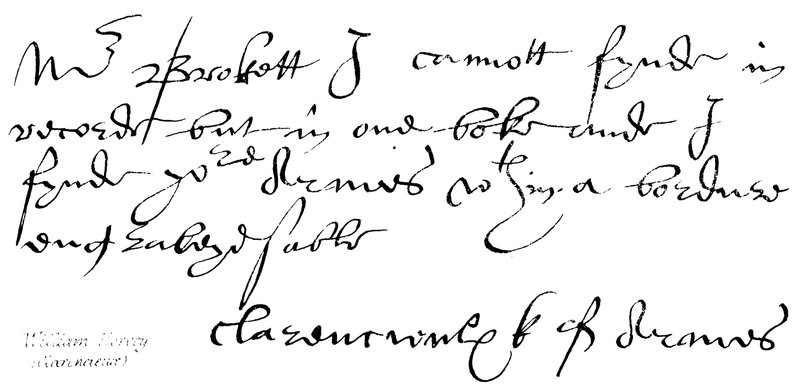 Mr Brokett I cannott fynde in
recorde but in one boke ande I
fynde yore Armes wth in a bordure
engrabeyd sable
Clarencieulx k of Armes
William Hervey
(Clarencieux)